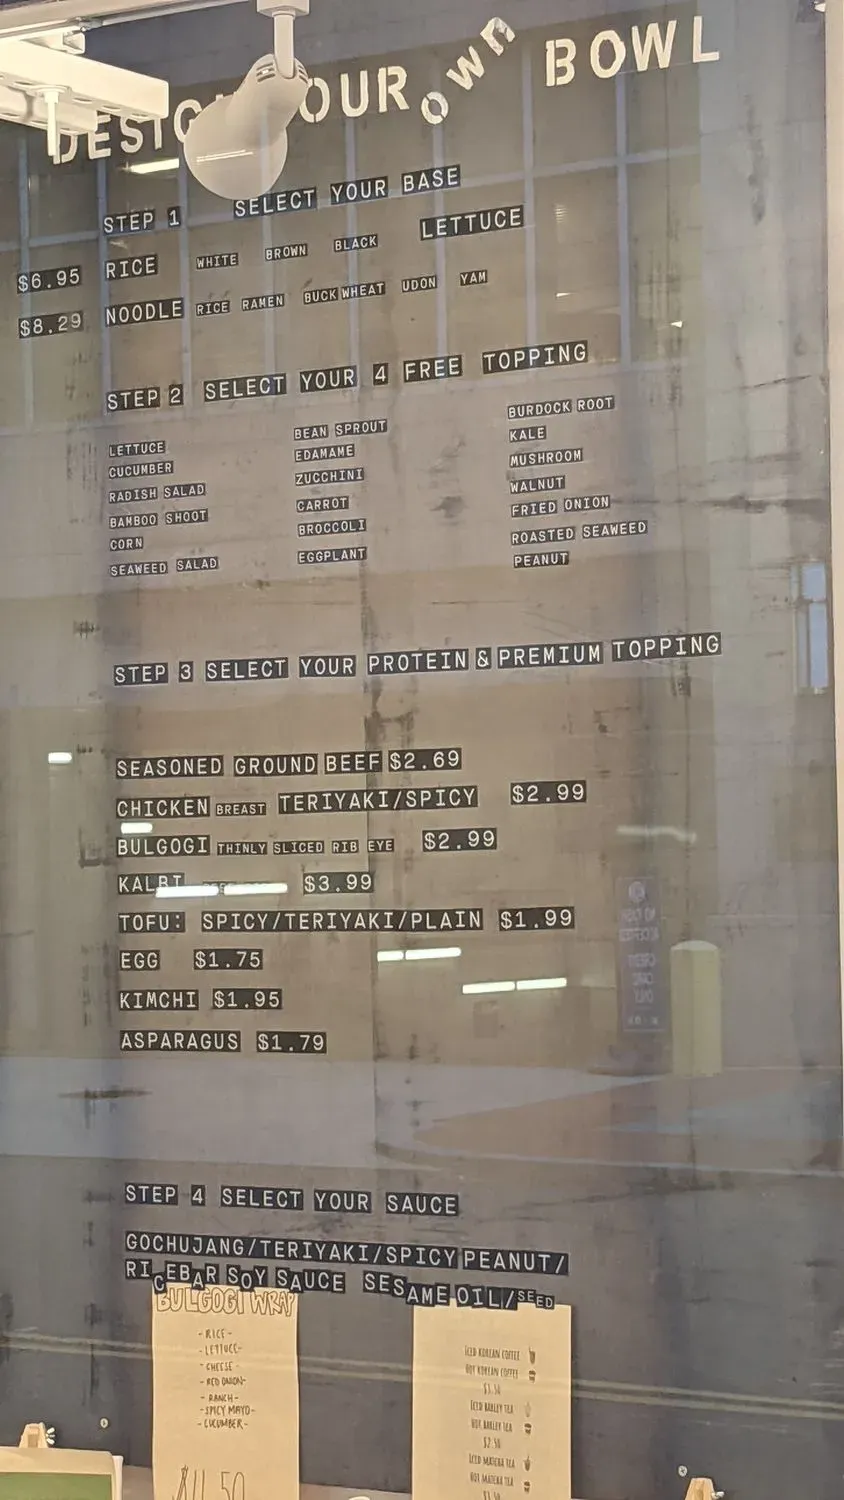 DESIGN YOUR OWN BOWL
STEP 1 SELECT YOUR BASE
$6.95 RICE WHITE BROWN BLACK LETTUCE
$8.29 NOODLE RICE RAMEN BUCKWHEAT UDON YAM
STEP 2 SELECT YOUR 4 FREE TOPPING
LETTUCE
CUCUMBER
RADISH SALAD
BAMBOO SHOOT
CORN
SEAWEED SALAD
BEAN SPROUT
EDAMAME
ZUCCHINI
CARROT
BROCCOLI
EGGPLANT
BURDOCK ROOT
KALE
MUSHROOM
WALNUT
FRIED ONION
ROASTED SEAWEED
PEANUT
STEP 3 SELECT YOUR PROTEIN & PREMIUM TOPPING
SEASONED GROUND BEEF $2.69
CHICKEN BREAST TERIYAKI/SPICY $2.99
BULGOGI THINLY SLICED RIB EYE $2.99
KALBI $3.99
TOFU: SPICY/TERIYAKI/PLAIN $1.99
EGG $1.75
KIMCHI $1.95
ASPARAGUS $1.79
STEP 4 SELECT YOUR SAUCE
GOCHUJANG/TERIYAKI/SPICY PEANUT/
RICEBAR SOY SAUCE SESAME OIL/SEED
BULGOGI WRAP
-RICE-
-LETTUCE-
-CHEESE-
-RED ONION-
-RANCH-
-SPICY MAYO-
-CUCUMBER-
$11.50
ICED KOREAN COFFEE
HOT KOREAN COFFEE
ICED BARLEY TEA
HOT BARLEY TEA
$2.50
ICED MATCHA TEA
HOT MATCHA TEA